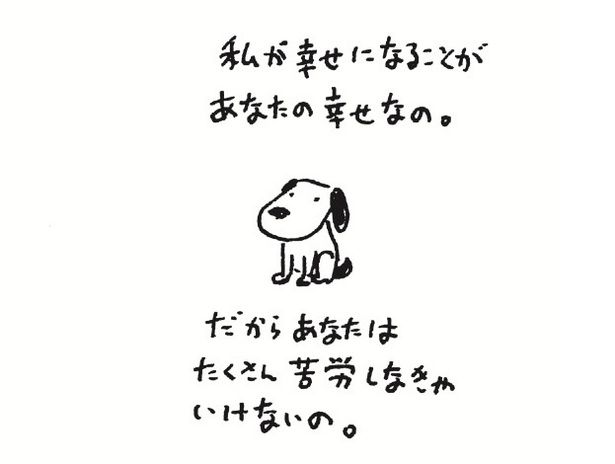 私が幸せになることが
あなたの幸せなの。
だからあなたは
たくさん苦労しなきゃ
いけないの。